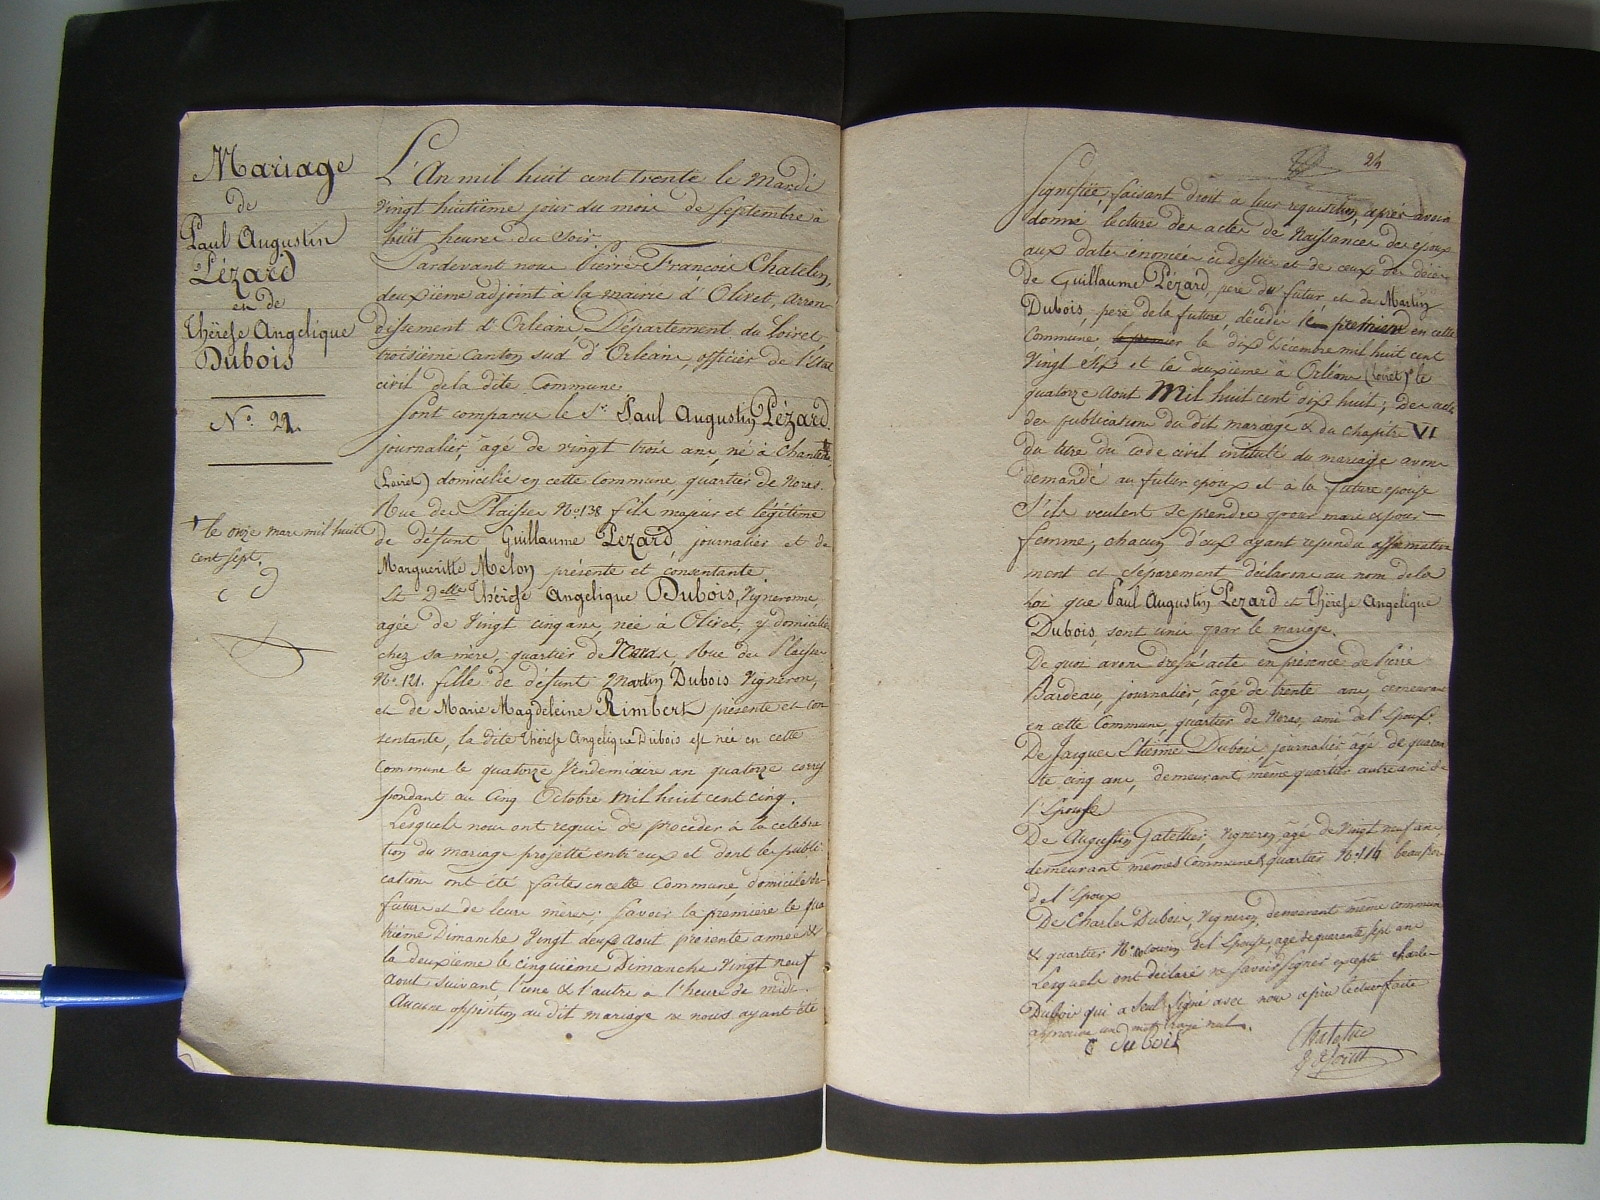 Mariage
de
Paul Augustin
Lézard
et de
Thérèse Angelique
Dubois
N.º 22
le onze mars mil huit
cent sept,
L'An mil huit cent trente le Mardi
vingt huitième jour du mois de septembre à
huit heures du soir.
Pardevant nous Pierre François Chatelin,
deuxième adjoint à la mairie d'Olivet, arron
dissement d'Orléans, Département du Loiret,
troisième Canton sud d'Orléans, officier de l'état
civil de la dite Commune
Sont comparus le Sr. Paul Augustin Lézard.
journalier, âgé de vingt trois ans, né à
(Loiret) domicilié en cette Commune, quartier de Noras.
Rue du Plaissis N.º 138 fils majeur et légitime
de défunt Guillaume Lezard journalier et de
Margueritte Melon présente et consentante
Et Delle Thérèse Angelique Dubois, Vigneronne,
agée de Vingt cinq ans, née à Olivet, y domiciliée
chez sa mère, quartier de Rue du Plaissis
N.º 121. fille de défunt Martin Dubois Vigneron,
et de Marie Magdeleine Rimbert présente et con
sentante, la dite Thérèse Angelique Dubois est née en cette
Commune le quatorze Vendemiaire an quatorze corres
pondant au Cinq Octobre mil huit cent cinq.
Lesquels nous ont requis de procéder à la celebra
tion du mariage projetté entr'eux et dont les publi
cations ont été faites en cette Commune, domicile des
futurs et de leurs mères; savoir la première le qua
trième Dimanche Vingt deux Aout présente année &
la deuxième le cinquième Dimanche Vingt neuf
Aout suivant l'une & l'autre a l'heure de midi.
Aucune opposition au dit mariage ne nous ayant été
24
signifiée, faisant droit a leur requisition, après avoir
donné lecture des actes de Naissances des époux
aux dates énoncées ci dessus et de ceux de décès
de Guillaume Lézard, père du futur, et de Martin
Dubois, père de la future, décédés le premier en cette
Commune, le dix Décembre mil huit cent
Vingt six et le deuxième à Orléans (Loiret) le
quatorze Aout Mil huit cent dix huit; des actes
de publication du dit mariage & du chapitre VI
du titre du code civil intitulé du mariage avons
demandé au futur epoux et a la future epouse
s'ils veulent se prendre pour mari et pour
femme; chacun d'eux ayant repondu affirmative
ment et séparement déclarons au nom de la
loi que Paul Augustin Lezard et Thérèse Angelique
Dubois, sont unis par le mariage.
De quoi avons dressé acte en présence de Pierre
Bardeau, journalier, âgé de trente ans, demeurant
en cette Commune quartier de Noras, ami de l'Epoux.
De Jacques Etienne Dubois, journalier âgé de quaran
te cinq ans, demeurant même quartier autre ami de
l'Epouse
De Augustin Gatellier, vigneron âgé de vingt neuf ans
demeurant mêmes Commune & quartier N.º 114 beau frère
de l'Epoux
De Charles Dubois, Vigneron, demeurant même commune
& quartier cousin de l'Epouse, agé de quarante sept ans
Lesquels ont déclaré ne savoir signer excepté Charles
Dubois qui a seul signé avec nous après lecture faite
approuvé un mot rayé nul.
C Dubois
Chatelin